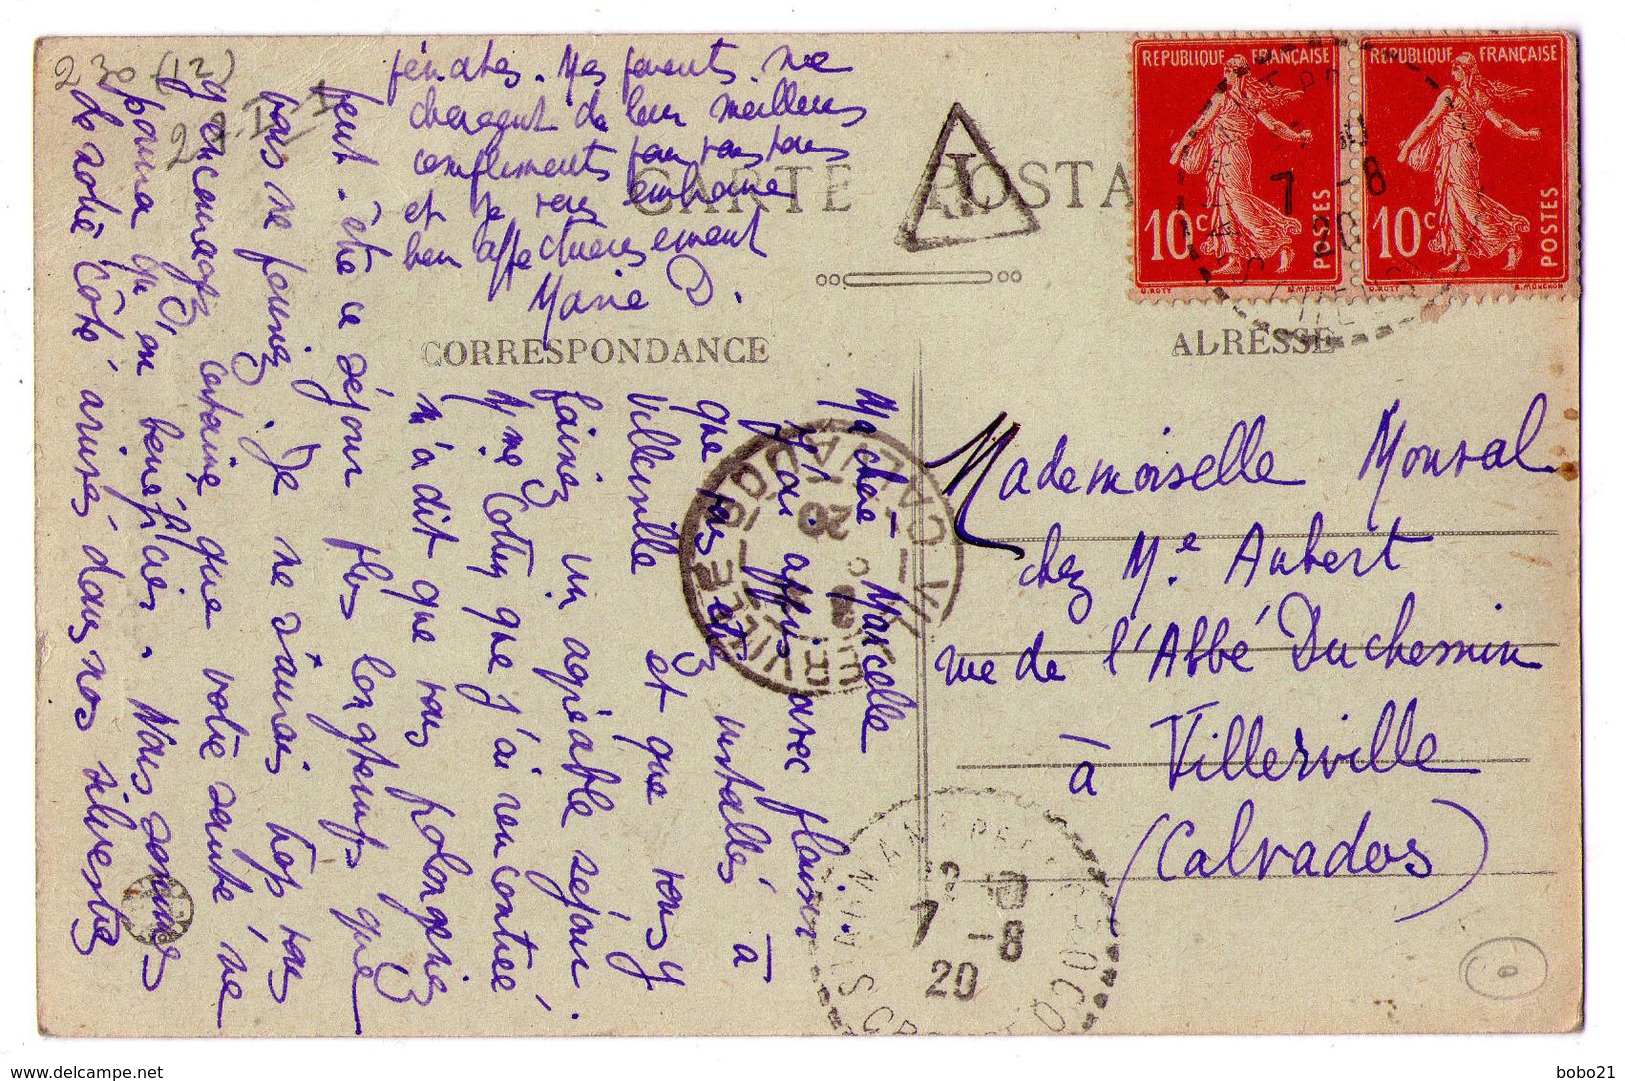 230 (12)
CARTE POSTA
T
REPUBLIQUE FRANÇAISE
10c
POSTES
O. ROTY
E. MOUCHON
REPUBLIQUE FRANÇAISE
10c
POSTES
O. ROTY
E. MOUCHON
7 -8
20
CORRESPONDANCE
ADRESSE
Ma chère Marcelle
J'ai appris avec plaisir
que vous étiez installés à
Villerville et que vous y
faisiez un agréable séjour.
Mme Coty que j'ai rencontrée
m'a dit que vous prolongeriez
peut-être ce séjour plus longtemps que
vous ne pensiez. Je ne saurais trop vous
y encourager certaine que votre santé ne
pourra qu'en bénéficier. Nous sommes
de notre côté arrivés dans nos
pénates. Mes parents me
chargent de leur meilleurs
compliments pour vous tous
et je vous embrasse
bien affectueusement
Marie D.
Mademoiselle Monval
chez Me Aubert
rue de l'Abbé Duchemin
à Villerville
(Calvados)
VILLERVILLE
CALVADOS
20
7 -8
20
bobo21